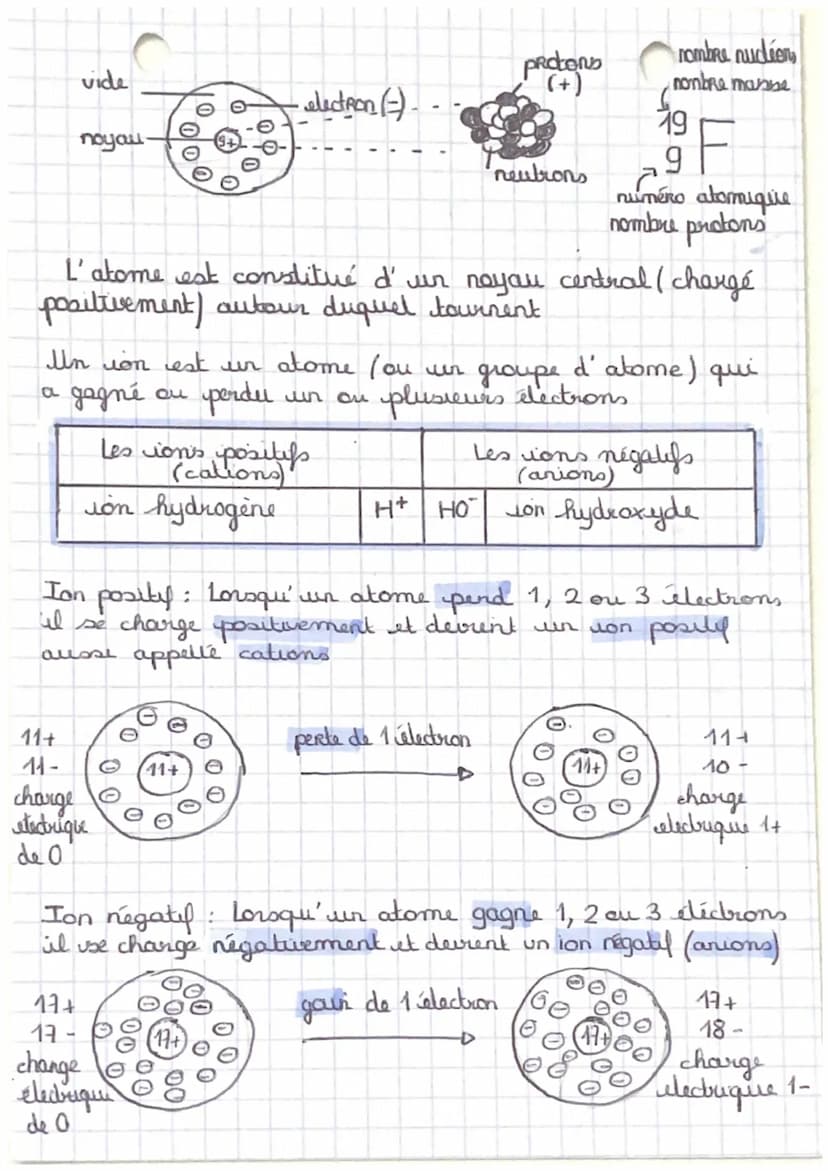 vide
noyau
9+
electron (-)
protons
(+)
neutrons
nombre nucléons
nombre masse
19
9 F
numéro atomique
nombre protons
L'atome est constitué d'un noyau central (chargé
positivement) autour duquel tournent
Un ion est un atome (ou un groupe d'atome) qui
a gagné ou perdu un ou plusieurs électrons
Les ions positifs
(cations)
Les ions négatifs
(anions)
ion hydrogène H+ HO⁻ ion hydroxyde
Ion positif : Lorsqu'un atome perd 1, 2 ou 3 électrons,
il se charge positivement et devient un ion positif
aussi appellé cations
11+
11-
charge
électrique
de 0
11+
perte de 1 électron
11+
11+
10 -
charge
electrique 1+
Ion négatif : Lorsqu'un atome gagne 1, 2 ou 3 électrons
il se charge négativement et devient un ion négatif (anions)
17+
17 -
charge
électrique
de 0
17+
gain de 1 électron
17+
17+
18 -
charge
electrique 1-